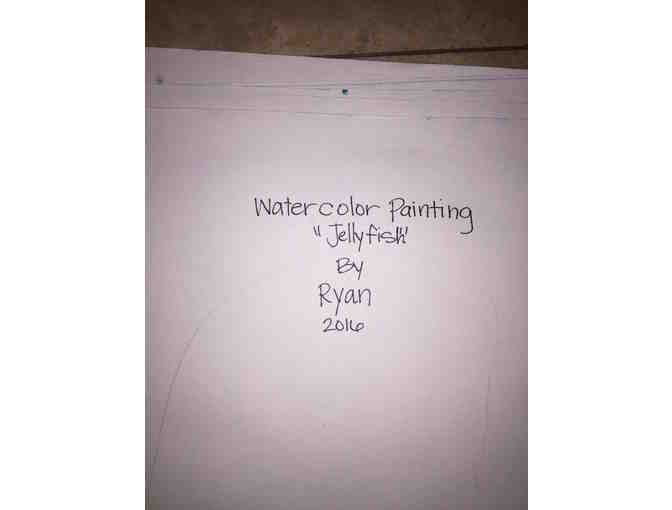 Watercolor Painting
"Jellyfish"
By
Ryan
2016